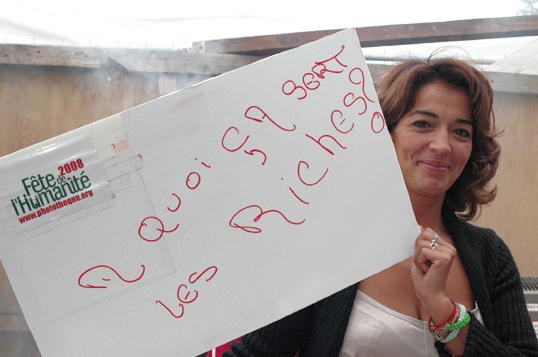 Fête de 2008
l'Humanité
www.phototheque.org
A QUOi ÇA SERT
LES RiCHES?